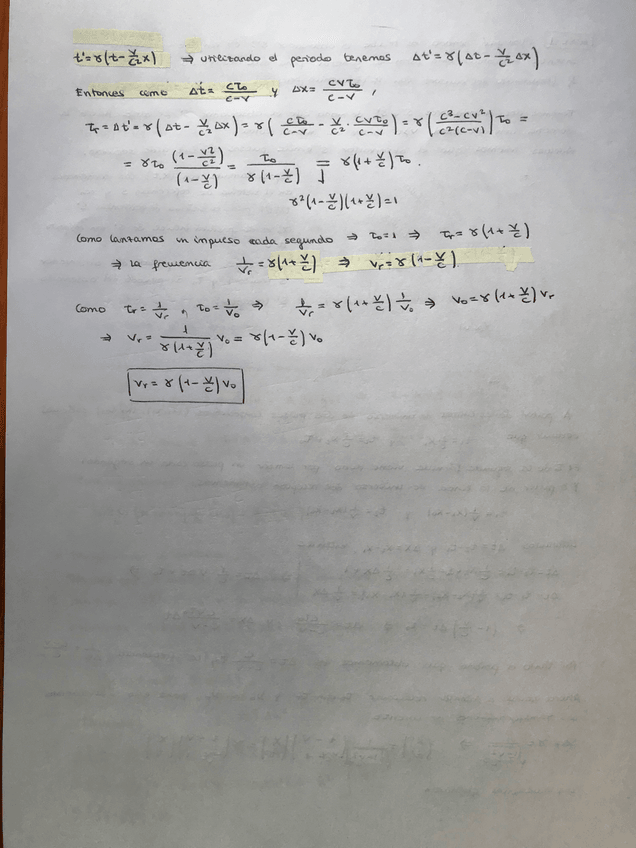 t'=γ(t-v/c² x) ⇒ utilizando el periodo tenemos Δt'=γ(Δt-v/c² Δx)
Entonces como Δt=cτ₀/(c-v) y Δx=cvτ₀/(c-v),
τᵣ=Δt'=γ(Δt-v/c² Δx)=γ(cτ₀/(c-v) - v/c² · cvτ₀/(c-v))=γ((c³-cv²)/(c²(c-v)))τ₀=
=γτ₀ (1-v²/c²)/(1-v/c)=τ₀/(γ(1-v/c))=γ(1+v/c)τ₀.
γ²(1-v/c)(1+v/c)=1
Como lanzamos un impulso cada segundo ⇒ τ₀=1 ⇒ τᵣ=γ(1+v/c)
⇒ la frecuencia 1/νᵣ=γ(1+v/c) ⇒ νᵣ=γ(1-v/c)
Como τᵣ=1/νᵣ, τ₀=1/ν₀ ⇒ 1/νᵣ=γ(1+v/c)1/ν₀ ⇒ ν₀=γ(1+v/c)νᵣ
⇒ νᵣ=1/(γ(1+v/c)) ν₀=γ(1-v/c)ν₀
νᵣ=γ(1-v/c)ν₀